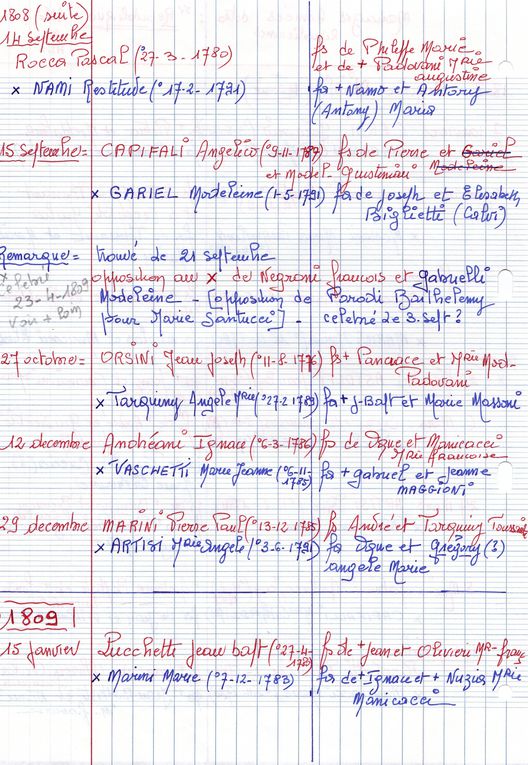 1808 (suite)
14 septembre
Rocca Pascal (°27-3-1780) fs de Philippe Marie
et de + Padovani Mrie
augustine
x NAMI Restitude (°17-2-1791) fa + Namo et Antony
(Antony) Maria
15 septembre = CAPIFALI Angelico (°9-11-1787) fs de Pierre et Gariel
et Madel- Giustiniani Madeleine
x GARIEL Madeleine (1-5-1791) fa de Joseph et Elisabeth
Biglietti (Calvi)
Remarque = trouvé de 21 septembre
opposition au x de Negroni francois et gabrielli
Madeleine - [opposition de Parodi Barthelemy
pour Marie Santucci] - celebré le 3 sept ?
x celebré
23-4-1807
Voir + Loin
27 octobre = ORSINI Jean Joseph (°11-8-1776) fs + Pancrace et Mrie Mad-
Padovani
x Tarquiny Angele Mrie (°27-2-1789) fa + J-Bapt et Marie Massoni
12 decembre Andréani Ignace (°6-3-1786) fs de Dque et Manicacci
Mrie francoise
x VASCHETTI Marie Jeanne (°6-11-1785) fa + gabriel et Jeanne
MAGGIONI
29 decembre MARINI Pierre Paul (°13-12-1785) fs André et Tarquiny Toussainte
x ARTISI Mrie Angele (°3-6-1791) fa Dque et grégory (3)
angele Marie
1809
15 janvier Lucchetti Jean bapt (°27-4-178) fs de + Jean et Olivieri MR-franç
x Marini Marie (°7-12-1783) fa de + Ignace et + Nuzios Mrie
Manicacci